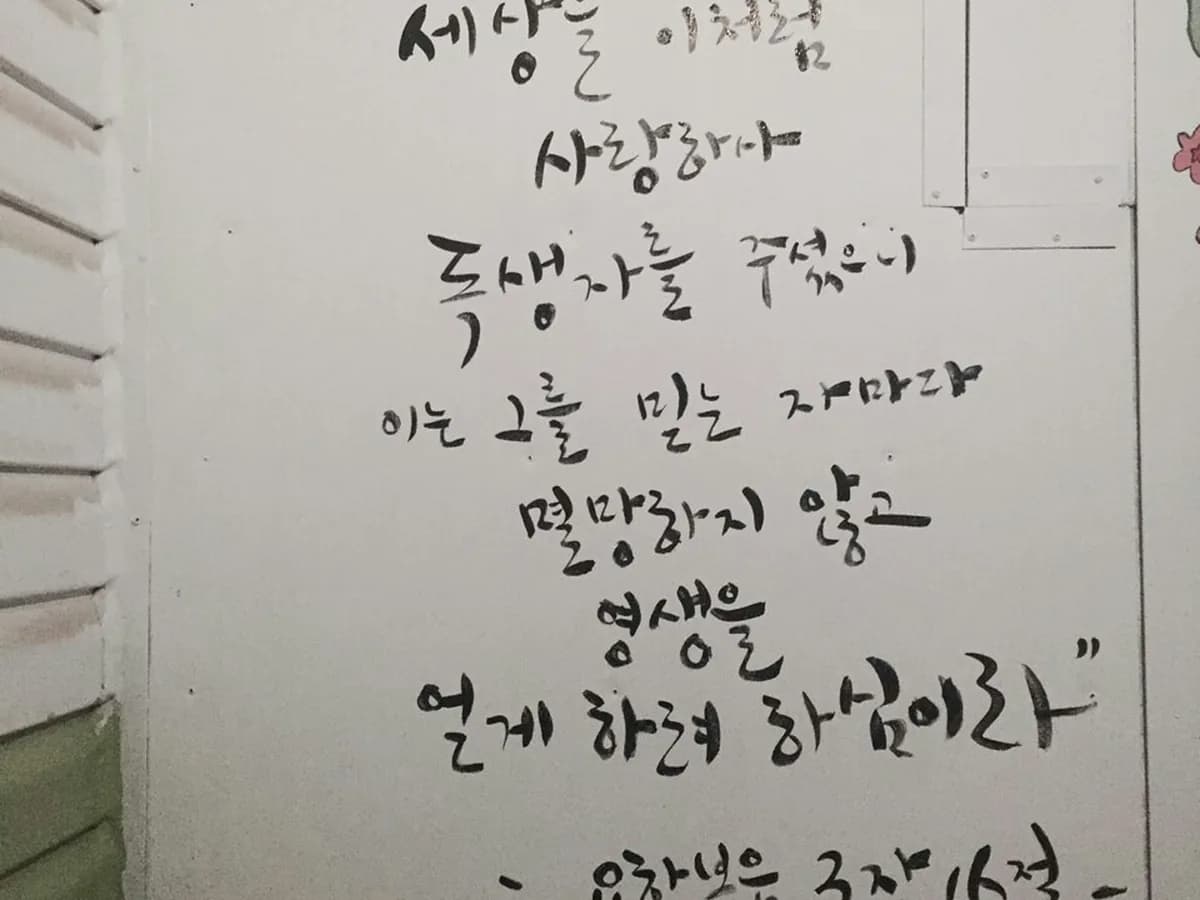 세상을 이처럼
사랑하사
독생자를 주셨으니
이는 그를 믿는 자마다
멸망하지 않고
영생을
얻게 하려 하심이라”
- 요한복음 3장 16절 -